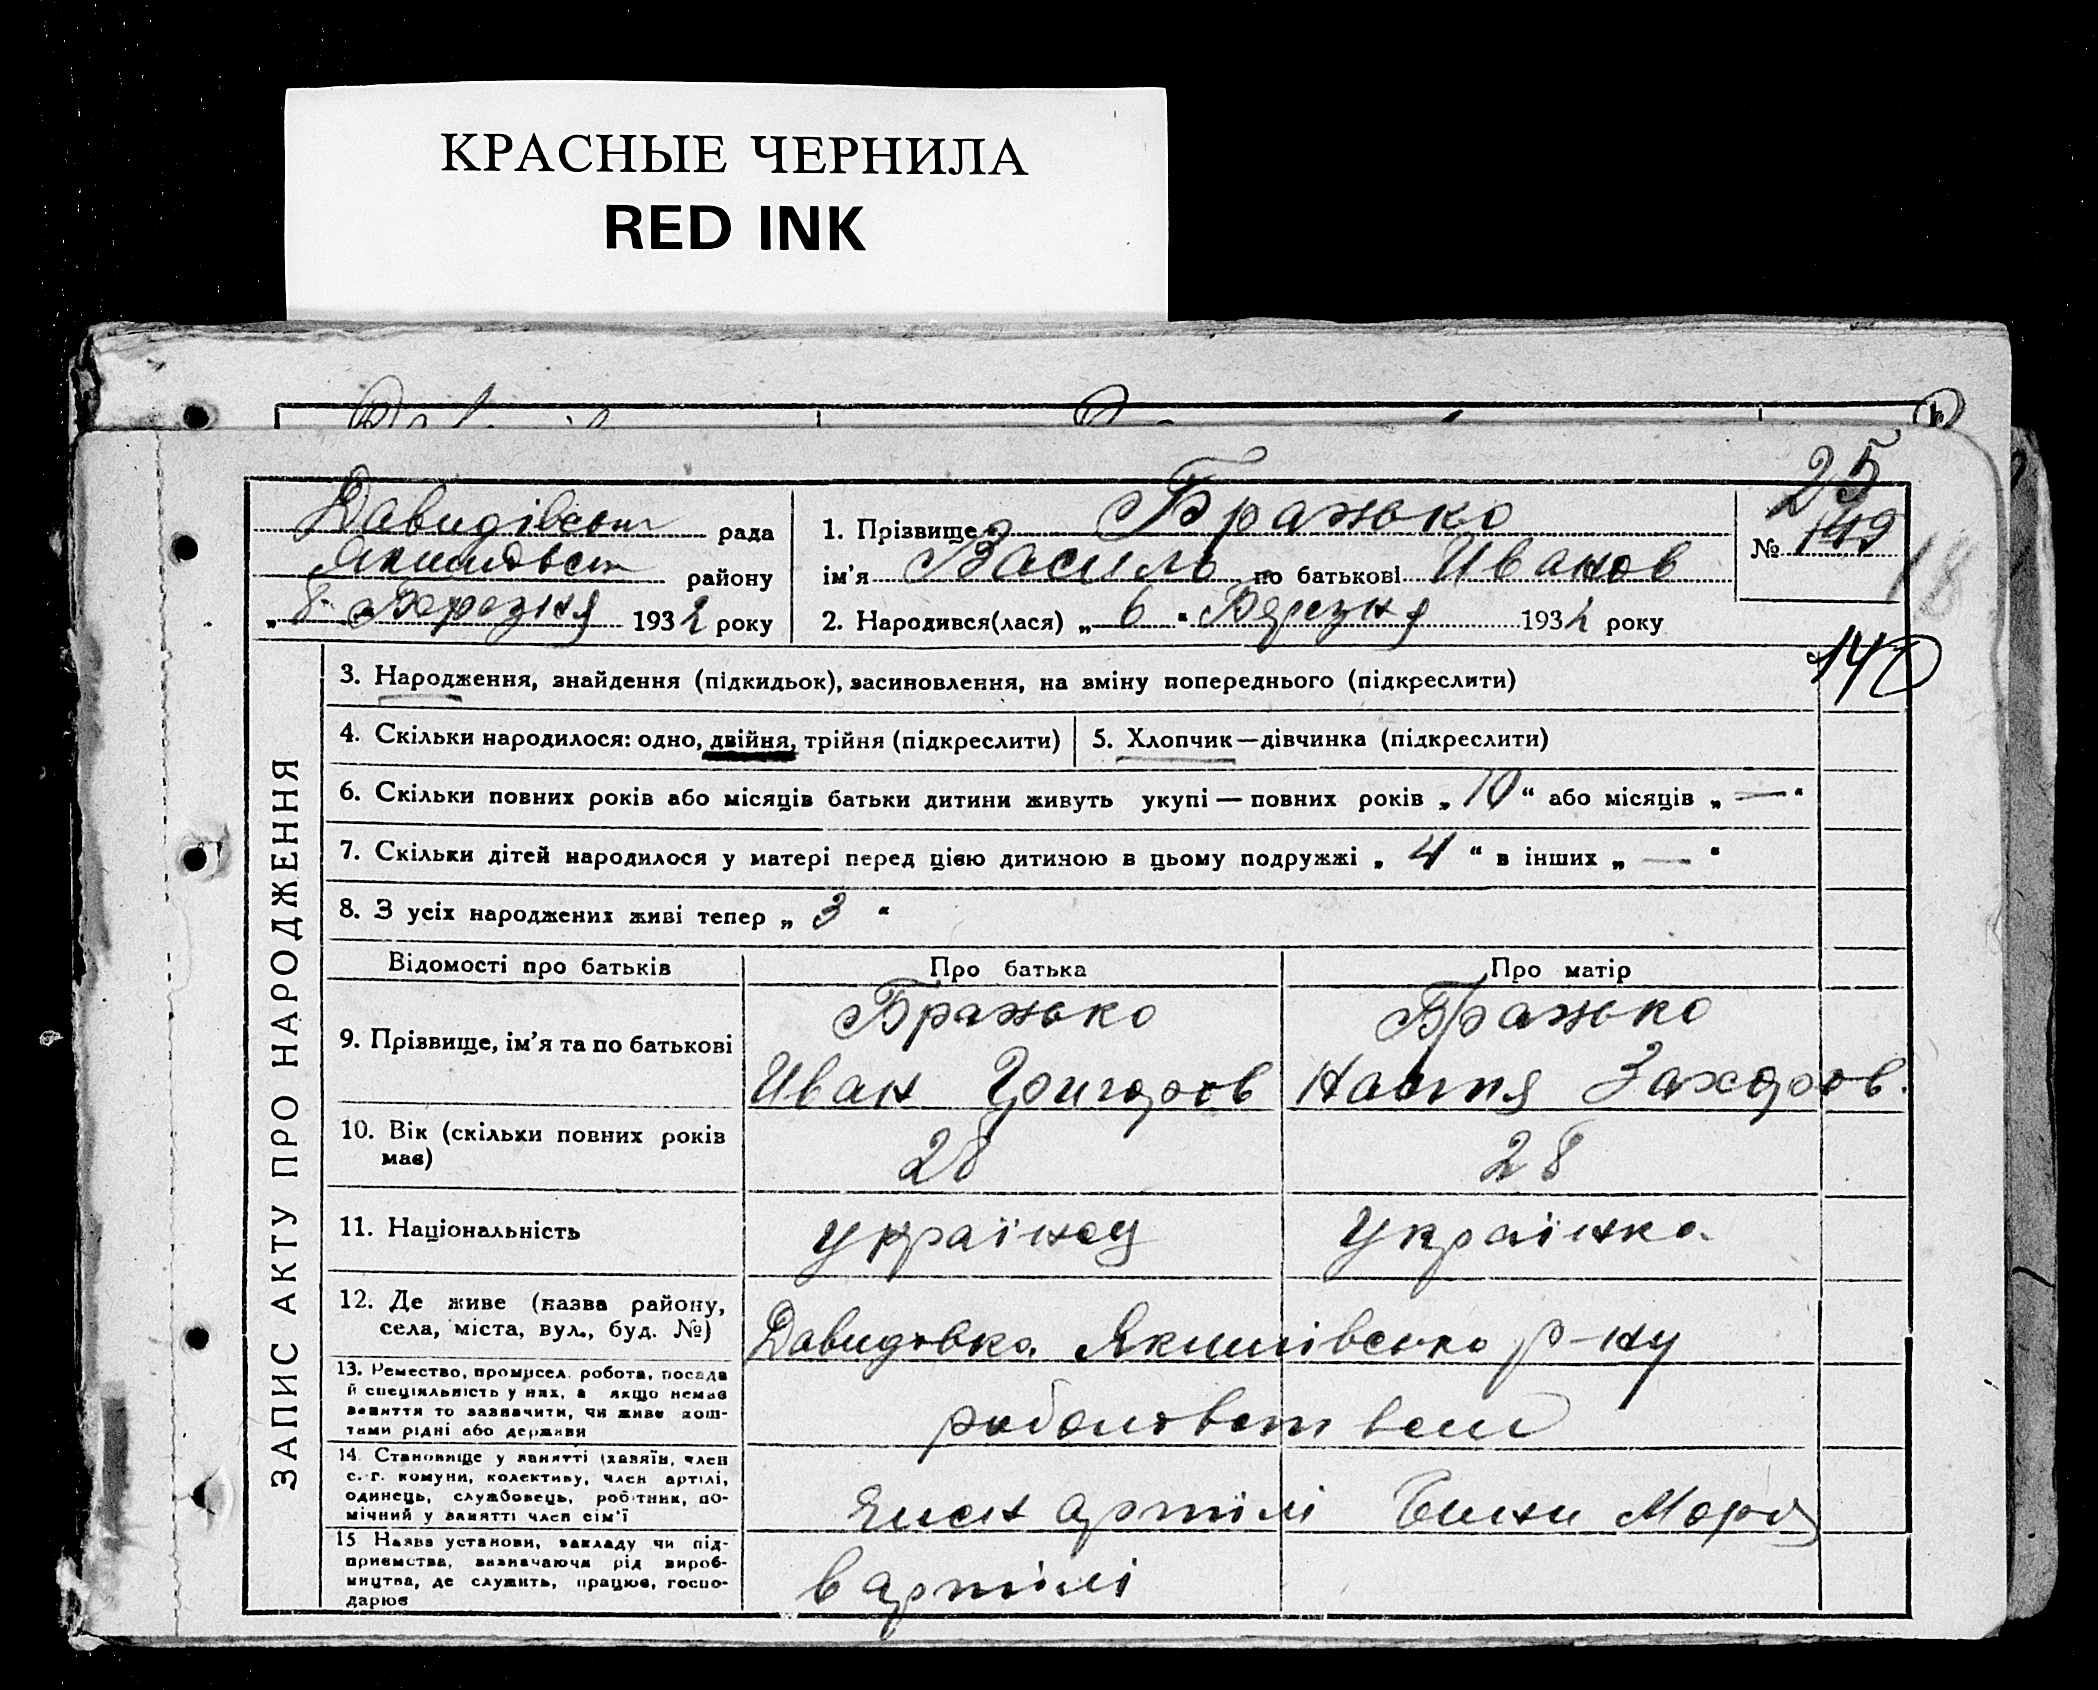 КРАСНЫЕ ЧЕРНИЛА
RED INK
25
Давидівськ рада
1. Прізвище Бражько
№ 149
18
Якимовськ району
ім'я Василь по батькові Иванов
„ 8 " Березня 1932 року
2. Народився(лася) „ 6 " Березня 1932 року
140
ЗАПИС АКТУ ПРО НАРОДЖЕННЯ
3. Народження, знайдення (підкидьок), засиновлення, на зміну попереднього (підкреслити)
4. Скільки народилося: одно, двійня, трійня (підкреслити)
5. Хлопчик—дівчинка (підкреслити)
6. Скільки повних років або місяців батьки дитини живуть укупі — повних років „ 10 “ або місяців „ — “
7. Скільки дітей народилося у матері перед цією дитиною в цьому подружжі „ 4 “ в інших „ — “
8. З усіх народжених живі тепер „ 3 “
Відомості про батьків
Про батька
Про матір
9. Прізвище, ім'я та по батькові
Бражько
Иван Григоров
Бражько
Настя Захаров.
10. Вік (скільки повних років
має)
28
28
11. Національність
українец
Українка
12. Де живе (назва району,
села, міста, вул., буд. №)
Давидовка Якимівсько р-ну
13. Ремество, промисел, робота, посада
й спеціяльність у них, а якщо немає
заняття то зазначити, чи живе кош-
тами рідні або держави
риболовством
14. Становище у занятті (хазяїн, член
с.-г. комуни, колективу, член артілі,
одинець, службовець, робітник, по-
мічний у занятті член сім'ї
Член артілі
Моря
15 Назва установи, закладу чи під-
приємства, зазначаючи рід вироб-
ництва, де служить, працює, госпо-
дарює
в артілі